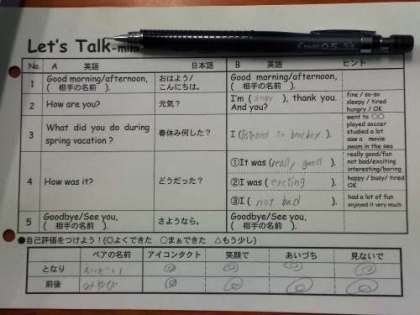 Let's Talk
No. A 英語 日本語 B 英語 ヒント
1 Good morning/afternoon, おはよう/ Good morning/afternoon,
( 相手の名前 ). こんにちは。 ( 相手の名前 ).
2 How are you? 元気? I'm ( ), thank you. fine / so-so
And you? sleepy / tired
hungry / OK
3 What did you do during 春休み何した? I ( ). went to ○○
spring vacation? played soccer
studied a lot
saw a movie
swam in the sea
4 How was it? どうだった? ①It was (really good ). really good/fun
not bad/exciting
interesting/boring
②It was ( exciting ). happy / busy/ tired
OK
③I ( not bad ) had a lot of fun
enjoyed it very much
5 Goodbye/See you, さようなら。 Goodbye/See you,
( 相手の名前 ). ( 相手の名前 ).
●自己評価をつけよう!(◎よくできた ○まぁできた △もう少し)
ペアの名前 アイコンタクト 笑顔で あいづち 見ないで
となり ◎ ◎ ◎ ◎
前後 ◎ ◎ ◎ ◎